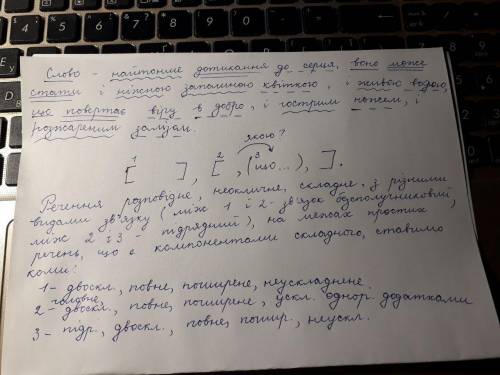 Слово - найтонше дотикання до серця, воно може
стати і ніжною запашною квіткою, і живою водою,
що повертає віру в добро, і гострим ножем, і
розжареним залізом.
якою?
1 2 3
[ ], [ , (що...), ].
Речення розповідне, неокличне, складне з різними
видами зв'язку (між 1 і 2 - зв'язок безсполучниковий,
між 2 і 3 - підрядний), на межах простих
речень, що є компонентами складного, ставимо
коми:
1 - двоскл., повне, поширене, неускладнене.
головне,
2 - двоскл., повне, поширене, ускл. однор. додатками
3 - підр., двоскл., повне, пошир., неускл.